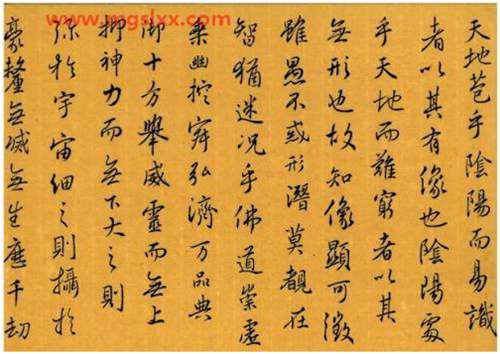 www.mgslxx.com
天地苞乎陰陽而易識
者以其有像也陰陽處
乎天地而難窮者以其
無形也故知像顯可徵
雖愚不惑形潛莫覩在
智猶迷況乎佛道崇虛
乘幽控寂弘濟万品典
御十方舉威靈而無上
抑神力而無下大之則
弥於宇宙細之則攝於
豪釐無滅無生歷千劫